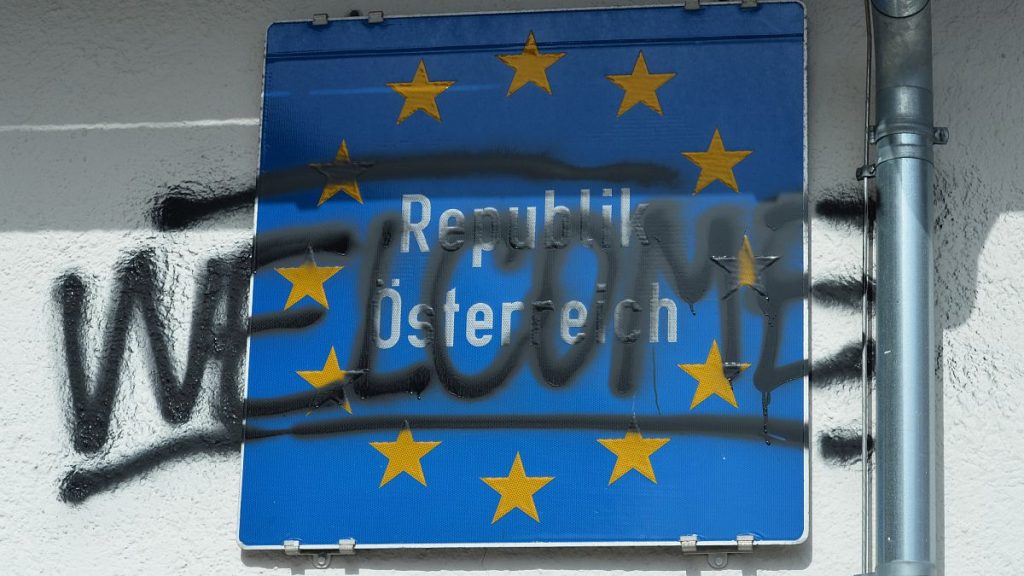 Republik
Österreich
WELCOME